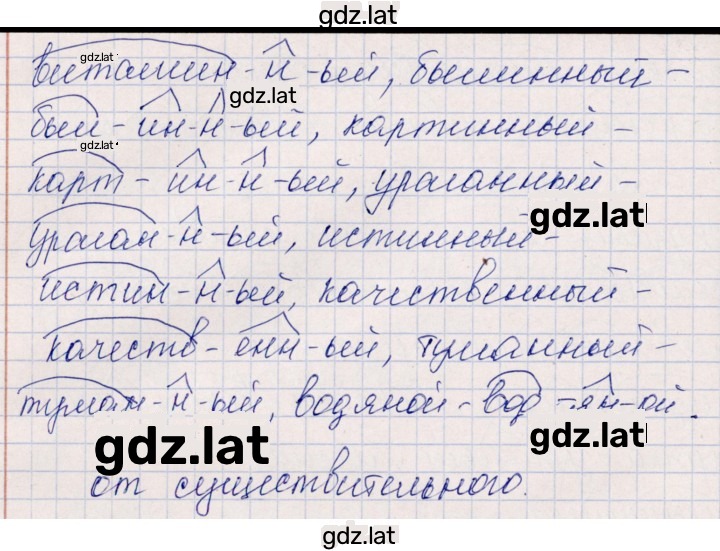 gdz.lat
витамин-н-ый, былинный -
gdz.lat
gdz.lat
был-ин-н-ый, картинный -
gdz.lat
карт-ин-н-ый, ураганный -
gdz.lat
ураган-н-ый, истинный -
истин-н-ый, качественный -
качеств-енн-ый, туманный -
туман-н-ый, водяной - вод-ян-ой.
gdz.lat
gdz.lat
от существительного.
gdz.lat